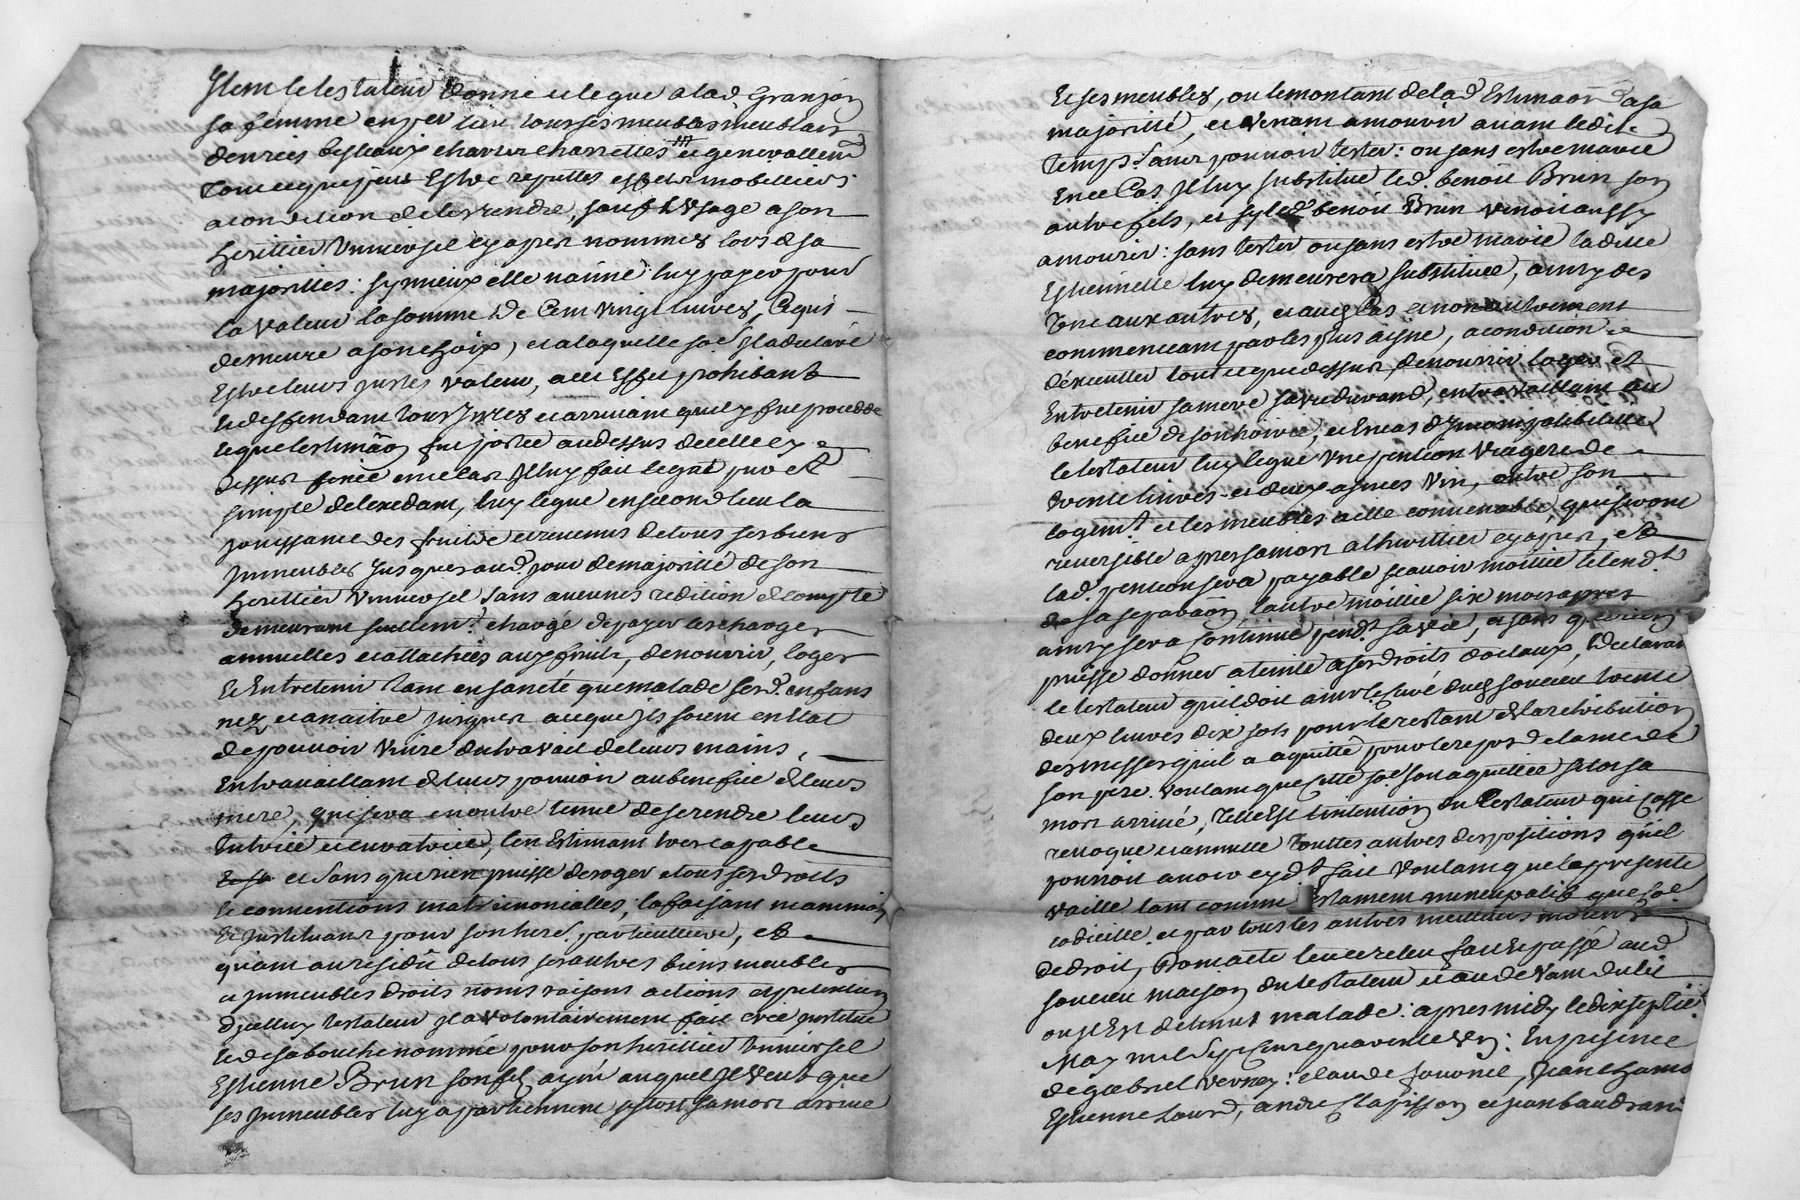 Item le testateur donne et legue a lad. Granjon
sa femme en pre lieu tous ses meubles meublans
denrées bestiaux charue charrettes et generallemt
tout ce que peut estre reputtés effets mobilliers
a condition de les rendre, sauf l'usage a son
herittier universel cy apres nommés lors de sa
majorittés : sy mieux elle n'aime luy payer pour
la valeur la somme de cent vingt livres, ce qui
demeure a son choix, et a laquelle so.e il a declaré
estre leurs justes valeur, a cet effet prohibant
et deffendant tous
et que l'estimaon fut portée au dessus de celle cy
dessus fixée en ce cas il luy fait legat pur et
simple de l'excedant, luy legue en second lieu la
jouissance des fruits et revenus de tous ses biens
immeubles jusques aud. jour de majoritté de son
herittier universel sans aucunes redition de compte
demeurant seullemt chargé de payer les charges
annuelles et attachées aux fruits, de nourrir, loger
et entretenir tant en santé que malade sesd. enfans
nez et a naitre jusques a ce que ils soient en etat
de pouvoir vivre du travail de leurs mains,
en travaillant de leurs pouvoir au benefice de leurs
mere, qui sera en outre tenue de se rendre leurs
tutrice et curatrice, l'en estimant tres capable
et sans que rien puisse deroger a tous ses droits
et conventions matrimonialles, la faisant
et instituant pour son hered. particulliere, et
quant au residu de tous ses autres biens meubles
et immeubles droits noms raisons actions et pretentions
d'icelluy testateur il a volontairement fait créé institué
et de sa bouche nommé pour son herittier universel
Estienne Brun son fils ayné auquel il veut que
ses immeubles luy appartiennent sitost sa mort arrivé
et ses meubles, ou le montant de lad. estimaon a sa
majoritté, et venant a mourir avant ledit
temps sans pouvoir tester : ou sans estre marié
en ce cas il luy substitue led. benoit Brun son
autre fils, et sy led. benoit Brun venoit aussy
a mourir : sans tester ou sans estre marié laditte
Estiennette luy demeurera substituée, ainsy des
uns aux autres, et auq. cas et non autrement
commencant par les plus aisné, a condition
d'executter tout ce que dessus, de nourrir loger et
entretenir sa mere sa vie durand, en travaillant au
benefice de son hoirie, et en cas d'incompatibilitté
le testateur luy legue une pention viagere de
trente livres et deux asnées vin, outre son
logemt et les meubles a elle convenable, qui seront
reversible apres sa mort a l'herittier cy apres, et
lad. pention sera payable scavoir moittié le lend.
de sa separaon l'autre moittié six mois apres
ainsy sera continué pendt sa vie, et sans que rien
puisse donner atteinte a ses droits dotaux, declarant
le testateur qu'il doit a mr le curé dud. soucieu trente
deux livres dix sols pour le restant de la retribution
des messes qu'il a aquitté pour le repos de l'ame de
son pere. voulant que cette so.e soit aquittée sitot sa
mort arrivé, telle est l'intention du testateur qui casse
revoque et annulle touttes autres dispositions qu'il
pourroit avoir cy dt fait voulant que la presente
vaille tant comme testament nuncupatif que
codicille et par tous les autres meilleurs moiens
de droit, Dont acte leu et releu fait et passé aud.
soucieu maison du testateur et au devant du lit
ou il est detenus malade : apres midy le dix sept
May mil sept cent quarente un : en presence
de gabriel verney : claude jouvenel, jean
Estienne , andre clapisson et jean baudrand